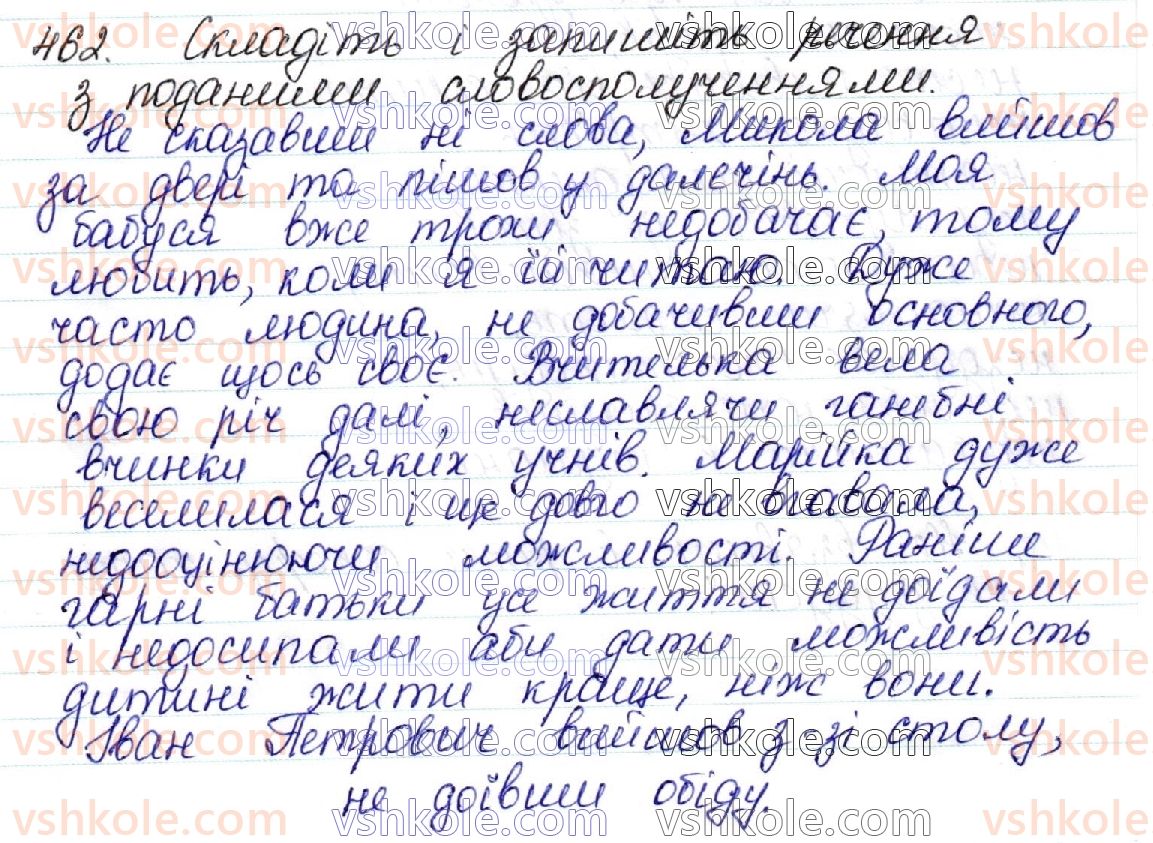 462. Складіть і запишіть речення
з поданими словосполученнями.
Не сказавши ні слова, Микола вийшов
за двері та пішов у далечінь. Моя
бабуся вже трохи недобачає, тому
любить, коли я їй читаю. Дуже
часто людина, не добачивши основного,
додає щось своє. Вчителька вела
свою річ далі, неславлячи ганебні
вчинки деяких учнів. Марійка дуже
веселилася і ще довго не вгавала,
недооцінюючи можливості. Раніше
гарні батьки усе життя не доїдали
і недосипали аби дати можливість
дитині жити краще, ніж вони.
Іван Петрович вийшов з-зі столу,
не доївши обіду.